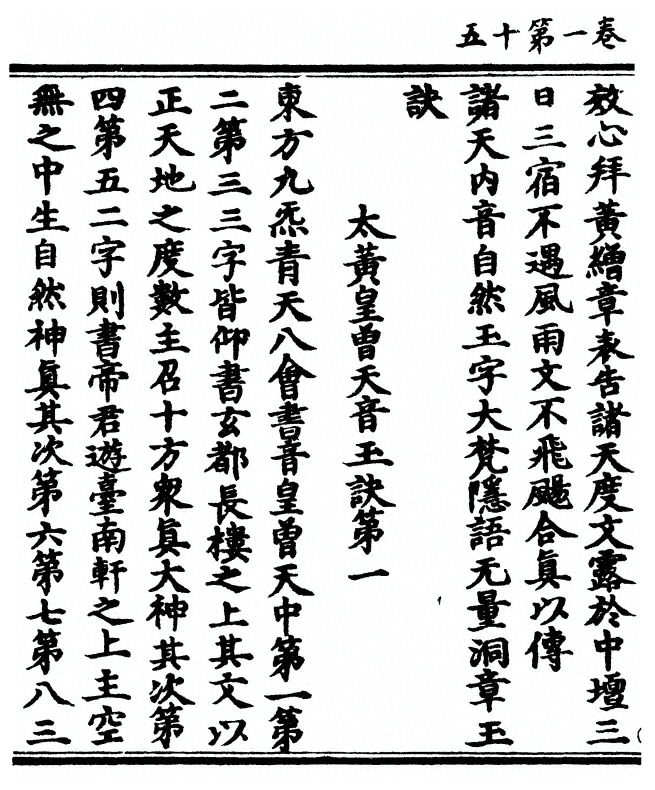 卷一第十五
效心拜黃繒章表告諸天度文露於中壇三
日三宿不遇風雨文不飛颺合眞以傳
諸天內音自然玉字大梵隱語无量洞章玉
訣
太黃皇曾天音玉訣第一
東方九炁青天八會書音皇曾天中第一第
二第三三字皆仰書玄都長樓之上其文以
正天地之度數主召十方衆眞大神其次第
四第五二字則書帝君遊臺南軒之上主空
無之中生自然神眞其次第六第七第八三